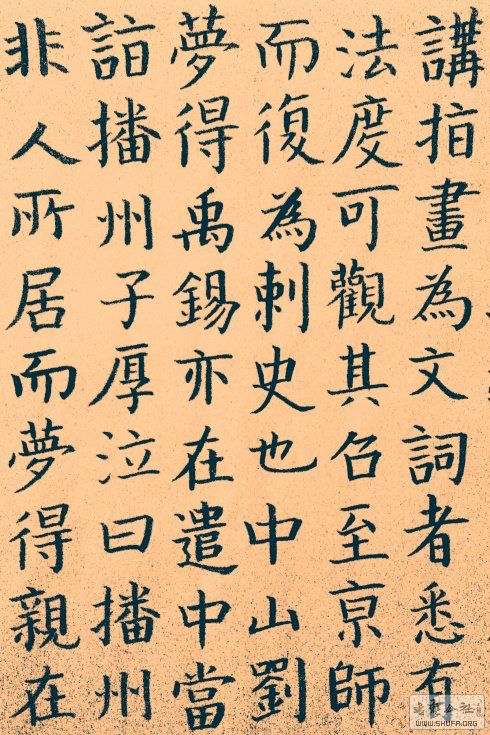 講指畫為文詞者悉有
法度可觀其召至京師
而復為刺史也中山劉
夢得禹錫亦在遣中當
詣播州子厚泣曰播州
非人所居而夢得親在
WWW.SHUFA.ORG